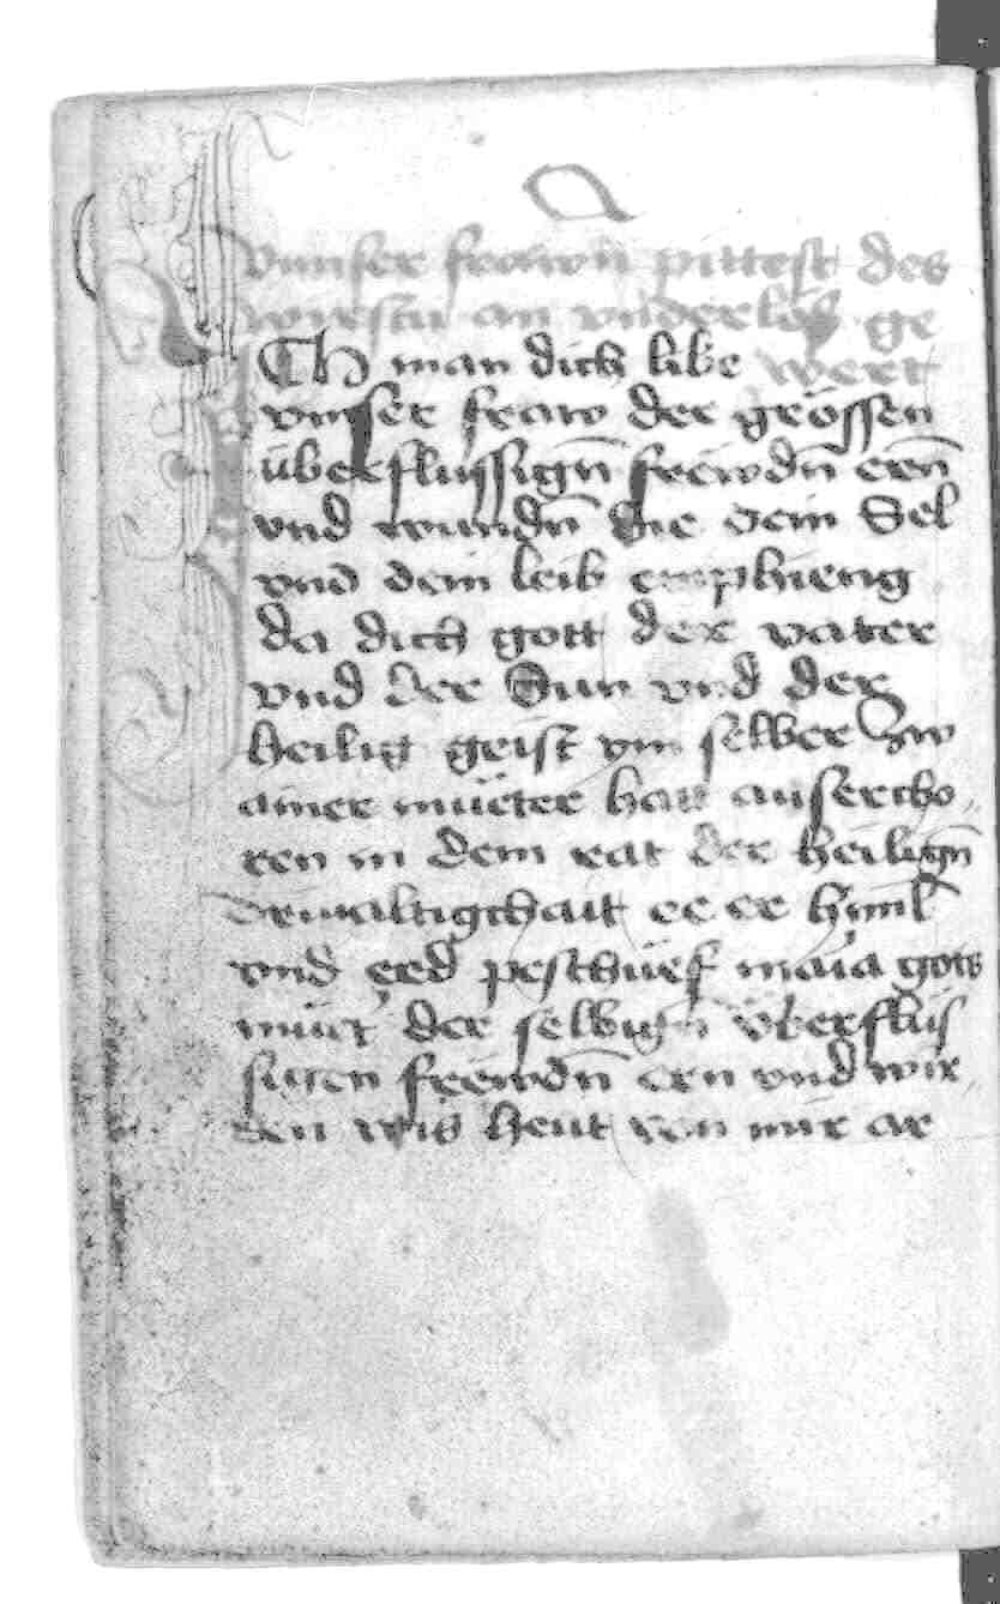 a
vnnser frawn pittest des
wirstu an vnderlas ge
Ich man dich libe wert
vnnser fraw der grössen
überflüssign̄ frewdn̄ ern̄
vnd wundn̄ die dein Sel
vnd dein leib emphieng
da dich gott der vater
vnd der Sun vnd der
heilig geist vm selber zw
ainer müeter hatt auserkho„
ren in dem rat der heilign̄
drivaltigchait ee er himl
vnd erd peschüef maria gots
müet' der selbign̄ überflüs
sigen frewdn̄ ern vnd wir„
den wis heut von mir er